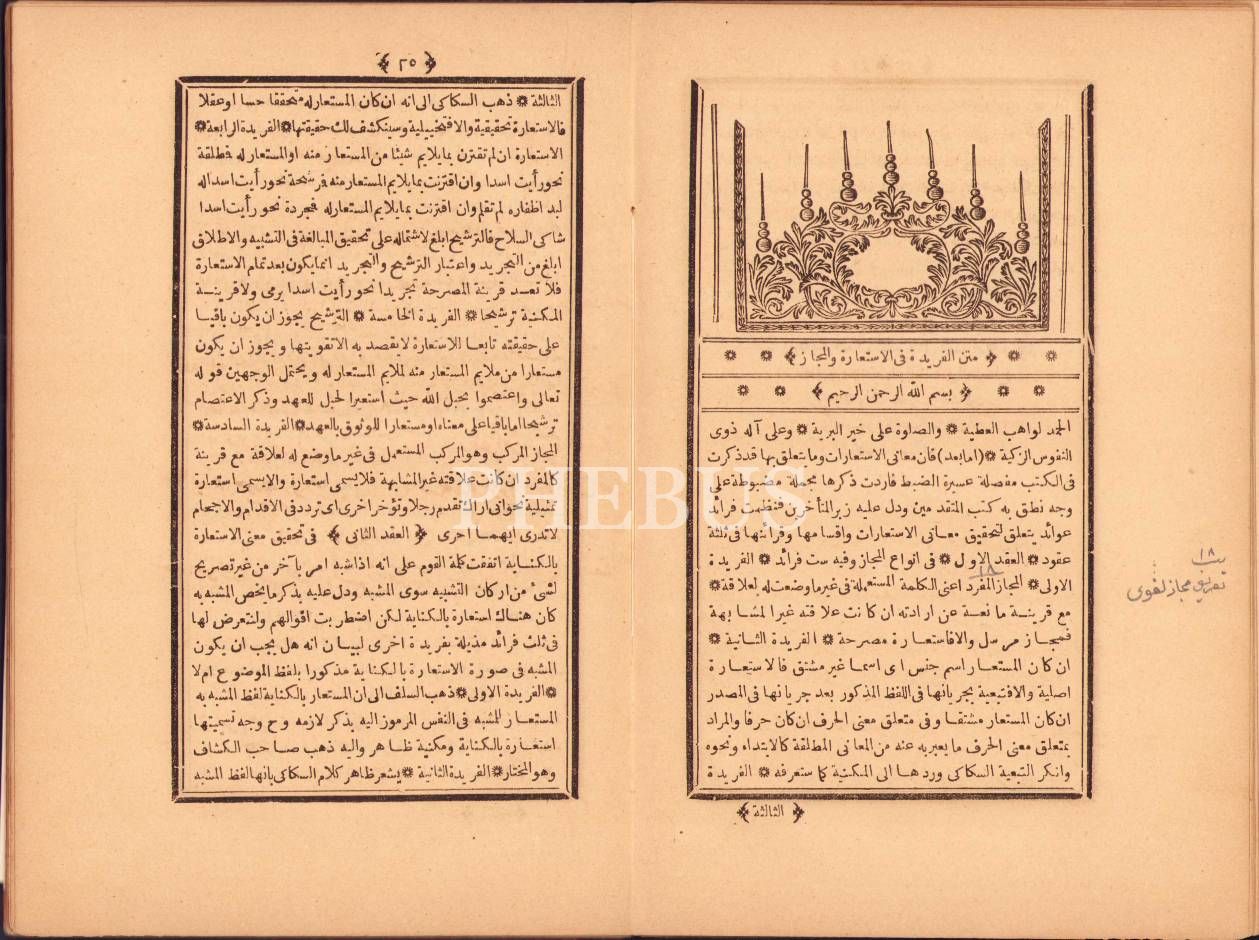 متن الفريدة فى الاستعارة والمجاز
بسم الله الرحمن الرحيم
الحمد لواهب العطية والصلوة على خير البرية وعلى آله ذوى
النفوس الزكية (اما بعد) فان معانى الاستعارات وما يتعلق بها قد ذكرت
فى الكتب مفصلة عسيرة الضبط فاردت ذكرها مجملة مضبوطة على
وجه نطق به كتب المتقدمين ودل عليه زبر المتأخرين فنظمت فرائد
عوائد يتعلق لتحقيق معانى الاستعارات واقسامها وقرائنها فى ثلثة
عقود العقد الاول فى انواع المجاز وفيه ست فرائد الفريدة
الاولى المجاز المفرد اعنى الكلمة المستعملة فى غير ما وضعت له لعلاقة
مع قرينة مانعة عن ارادته ان كانت علاقته غير المشابهة
فمجاز مرسل والا فاستعارة مصرحة الفريدة الثانية
ان كان المستعار اسم جنس اى اسما غير مشتق فالاستعارة
اصلية والا فتبعية بجريانها فى اللفظ المذكور بعد جريانها فى المصدر
ان كان المستعار مشتقا وفى متعلق معنى الحرف ان كان حرفا والمراد
بمتعلق معنى الحرف ما يعبر به عنه من المعانى المطلقة كالابتداء ونحوه
وانكر التبعية السكاكى وردها الى المكنية كما ستعرفه الفريدة
الثالثة
١٨
١٨
مجاز لغوى
٢٥
الثالثة ذهب السكاكى الى انه ان كان المستعار له متحققا حسا او عقلا
فالاستعارة تحقيقية والا فتخييلية وسينكشف لك حقيقتها الفريدة الرابعة
الاستعارة ان لم تقترن بما يلايم شيئا من المستعار منه او المستعار له فمطلقة
نحو رأيت اسدا وان اقترنت بما يلايم المستعار منه فمرشحة نحو رأيت اسدا له
لبد اظفاره لم تقلم وان اقترنت بما يلايم المستعار له فمجردة نحو رأيت اسدا
شاكى السلاح فالترشيح ابلغ لاشتماله على تحقيق المبالغة فى التشبيه والاطلاق
ابلغ من التجريد واعتبار الترشيح والتجريد انما يكون بعد تمام الاستعارة
فلا تعد قرينة المصرحة تجريدا نحو رأيت اسدا يرمى ولا قرينة
المكنية ترشيحا الفريدة الخامسة الترشيح يجوز ان يكون باقيا
على حقيقته تابعا للاستعارة لا يقصد به الا تقويتها ويجوز ان يكون
مستعارا من ملايم المستعار منه لملايم المستعار له ويحتمل الوجهين قوله
تعالى واعتصموا بحبل الله حيث استعير الحبل للعهد وذكر الاعتصام
ترشيحا اما باقيا على معناه او مستعارا للوثوق بالعهد الفريدة السادسة
المجاز المركب وهو المركب المستعمل فى غير ما وضع له لعلاقة مع قرينة
كالمفرد ان كانت علاقته غير المشابهة فلا يسمى استعارة والا يسمى استعارة
تمثيلية نحو انى اراك تقدم رجلا وتؤخر اخرى اى تردد فى الاقدام والاحجام
لا تدرى ايهما احرى (العقد الثانى) فى تحقيق معنى الاستعارة
بالكناية اتفقت كلمة القوم على انه اذا شبه امر بآخر من غير تصريح
لشئ من اركان التشبيه سوى المشبه ودل عليه بذكر ما يخص المشبه به
كان هناك استعارة بالكناية لكن اضطربت اقوالهم ولنتعرض لها
فى ثلث فرائد مذيلة بفريدة اخرى لبيان انه هل يجب ان يكون
المشبه فى صورة الاستعارة بالكناية مذكورا بلفظ الموضوع ام لا
الفريدة الاولى ذهب السلف الى ان المستعار بالكناية لفظ المشبه به
المستعار للمشبه فى النفس المرموز اليه بذكر لازمه وح وجه تسميتها
استعارة بالكناية ومكنية ظاهر واليه ذهب صاحب الكشاف
وهو المختار الفريدة الثانية يشعر ظاهر كلام السكاكى بانها لفظ المشبه
PHEBUS